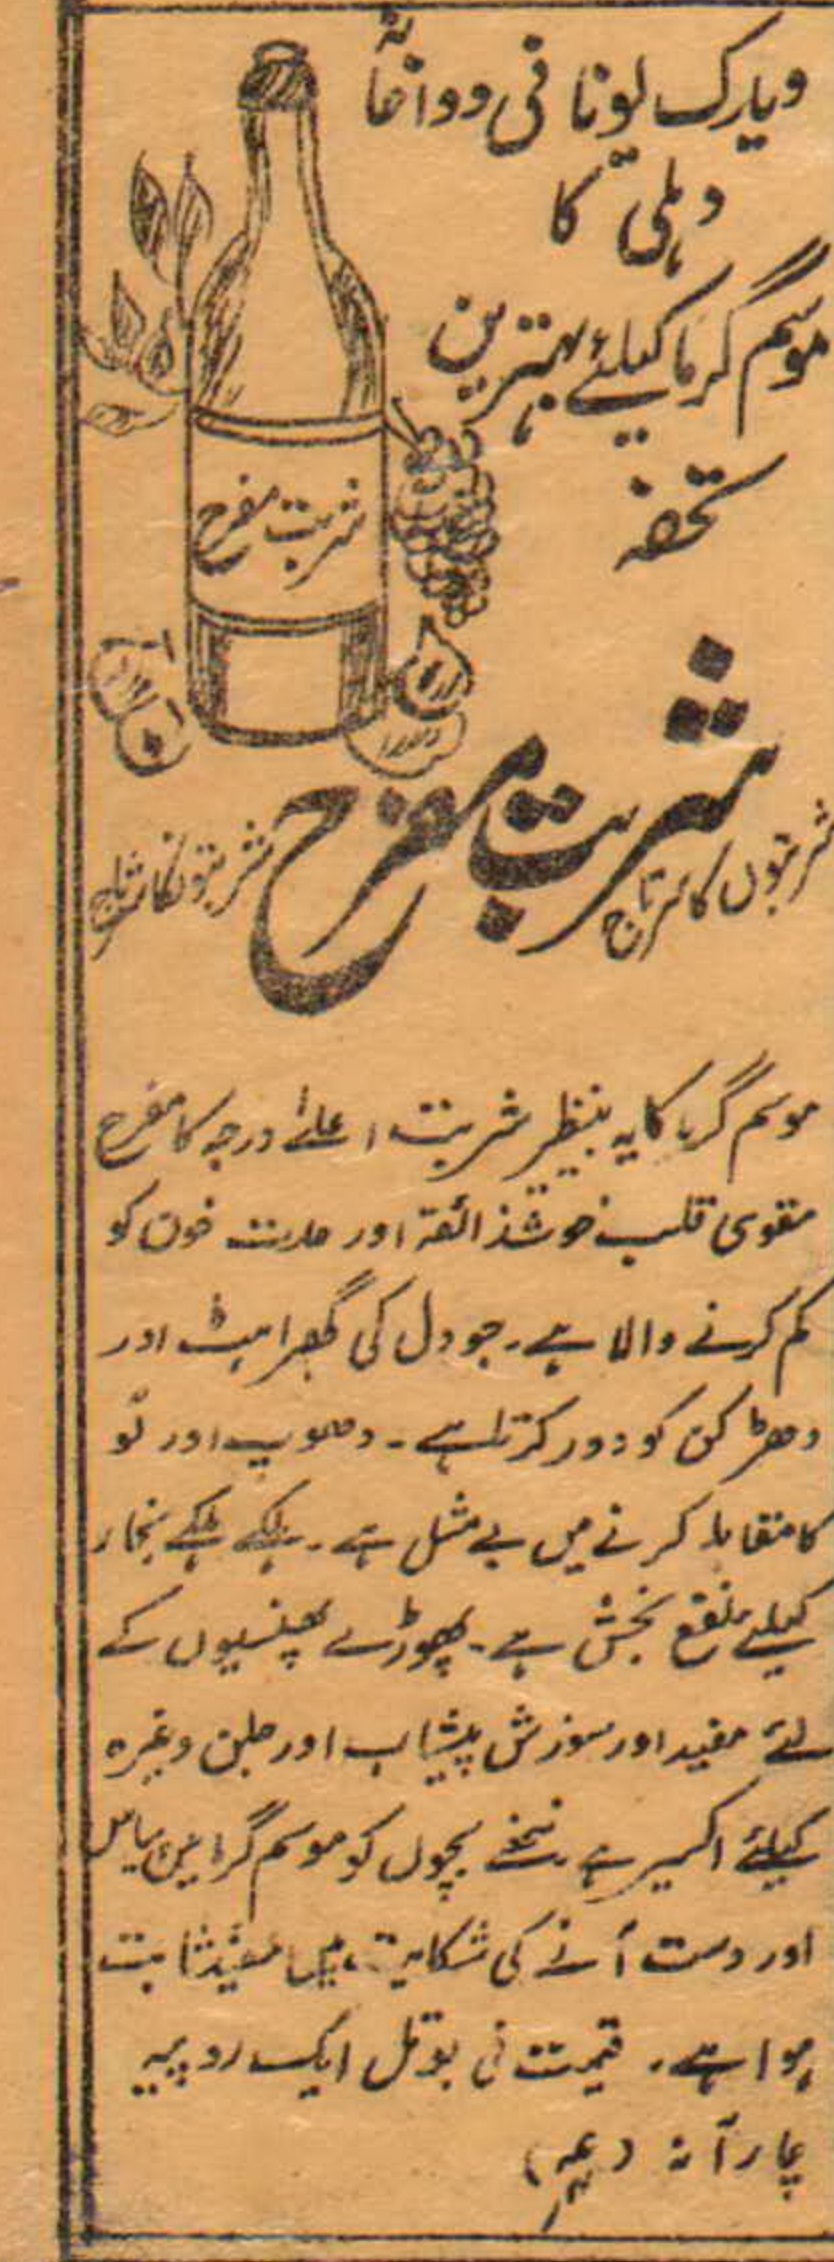 ویدک یونانی دواخانہ
دہلی کا
موسم گرما کیلئے بہترین
تحفہ
شربت مفرح
شربت مفرح
شربتوں کا سرتاج
شربتوں کا سرتاج
موسم گرما کا یہ بینظیر شربت اعلےٰ درجہ کا مفرح
مقوی قلب خوشذائقہ اور حدت خون کو
کم کرنے والا ہے۔ جو دل کی گھبراہٹ اور
دھڑکن کو دور کرتا ہے۔ دھوپ اور لُو
کا مقابلہ کرنے میں بے مثل ہے۔ ہلکے ہلکے بخار
کیلئے نفع بخش ہے۔ پھوڑے پھنسیوں کے
لئے مفید اور سوزش پیشاب اور جلن وغیرہ
کیلئے اکسیر ہے۔ ننھے بچوں کو موسم گرما میں پیاس
اور دست آنے کی شکایت میں مفید ثابت
ہوا ہے۔ قیمت فی بوتل ایک روپیہ
چار آنہ